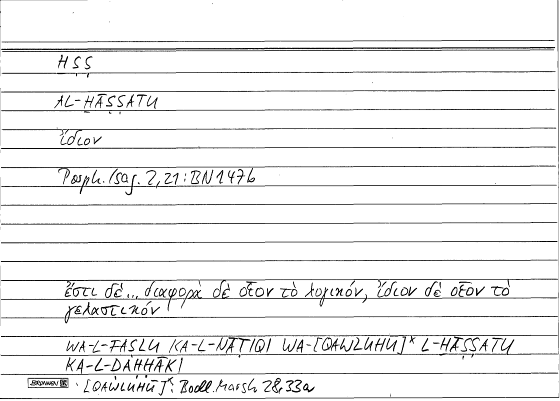 ḪṢṢ
AL-ḪĀṢṢATU
ἴδιον
Porph. Isag. 2,21: BN 147b
ἔστι δὲ... διαφορὰ δὲ οἷον τὸ λογικόν, ἴδιον δὲ οἷον τὸ
γελαστικόν
WA-L-FAṢLU KA-L-NĀṬIQI WA-[QAWLUHU]* L-ḪĀṢṢATU
KA-L-ḌAḤḤĀKI
[QAWLUHŪ]*: Bodl. Marsh 28,33a